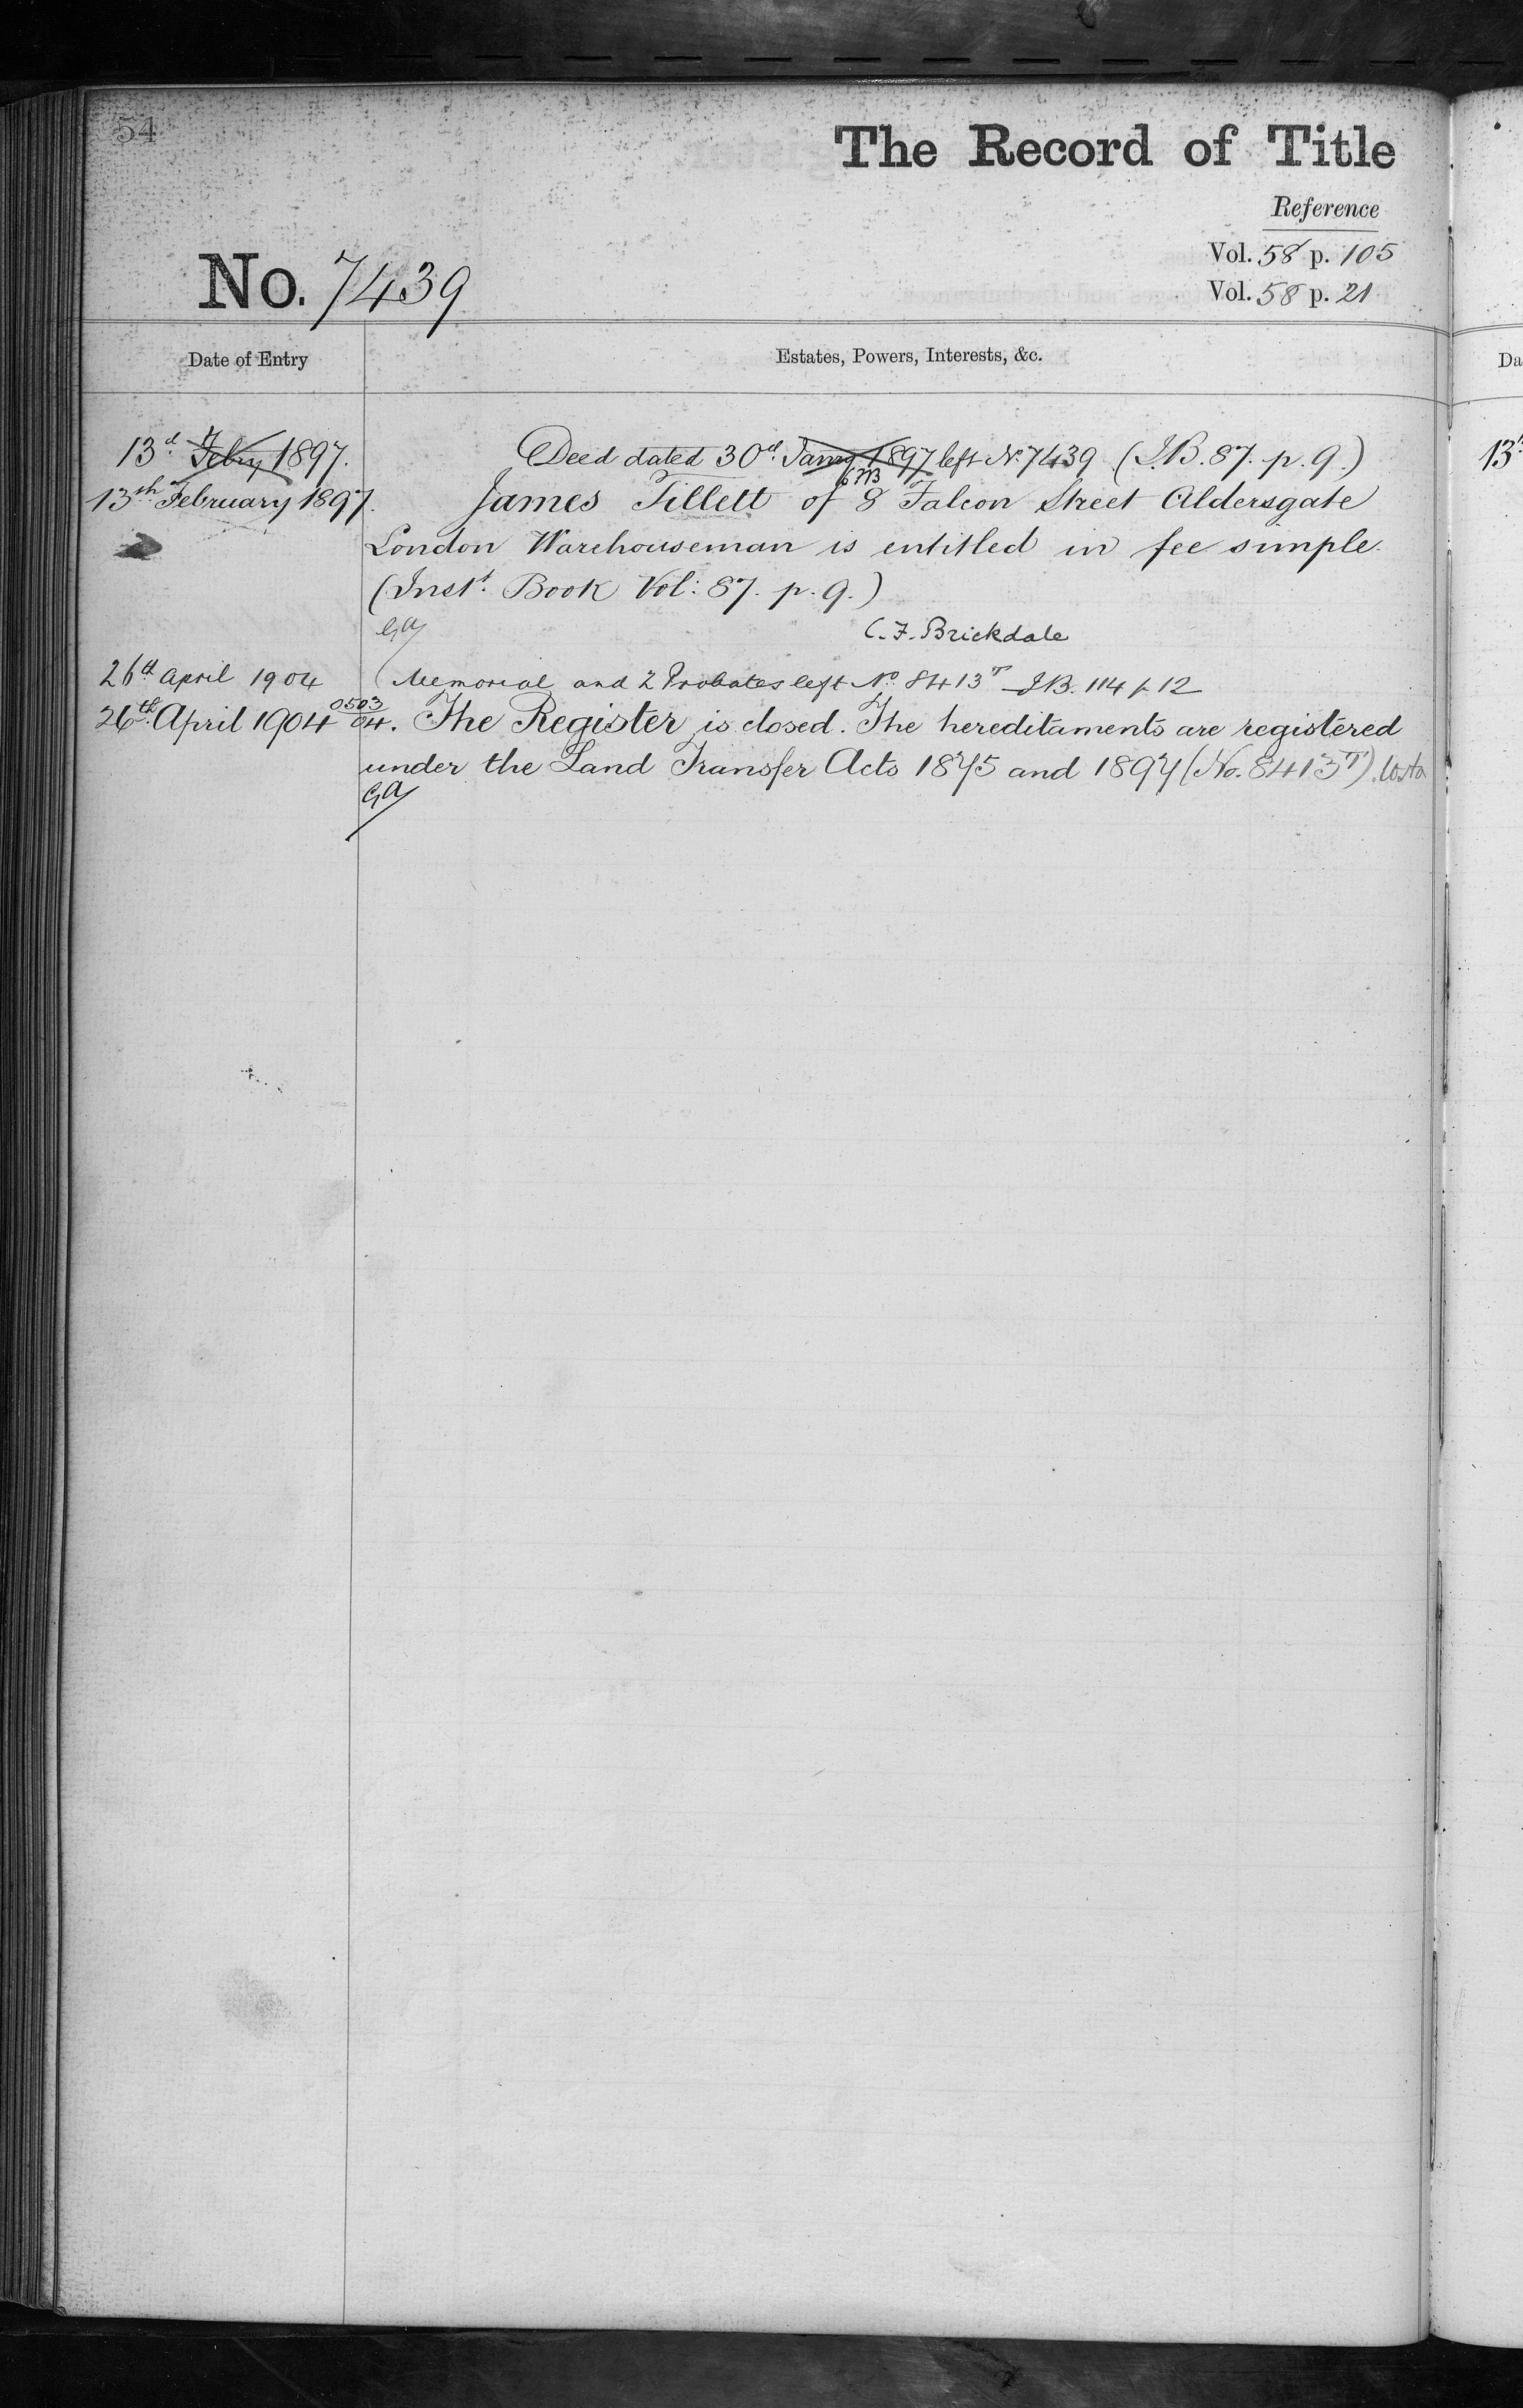 54
The Record of Title
Reference
Vol. 58 p. 105
No. 7439
Vol. 58 p. 21
Date of Entry
Estates, Powers, Interests, &c.
Da
13d. Feby 1897. Deed dated 30d. Jany 1897 left No. 7439 (I.B. 87. p. 9.)
13th February 1897. James Tillett of 8 Falcon Street Aldersgate
London Warehouseman is entitled in fee simple.
(Inst. Book Vol: 87. p. 9.)
GA C. F. Brickdale
26th April 1904 Memorial and 2 Probates left No. 8413T I.B. 114 p 12
26th. April 1904 0503/04. The Register is closed. The hereditaments are registered
under the Land Transfer Acts 1875 and 1897 (No. 8413T).
GA